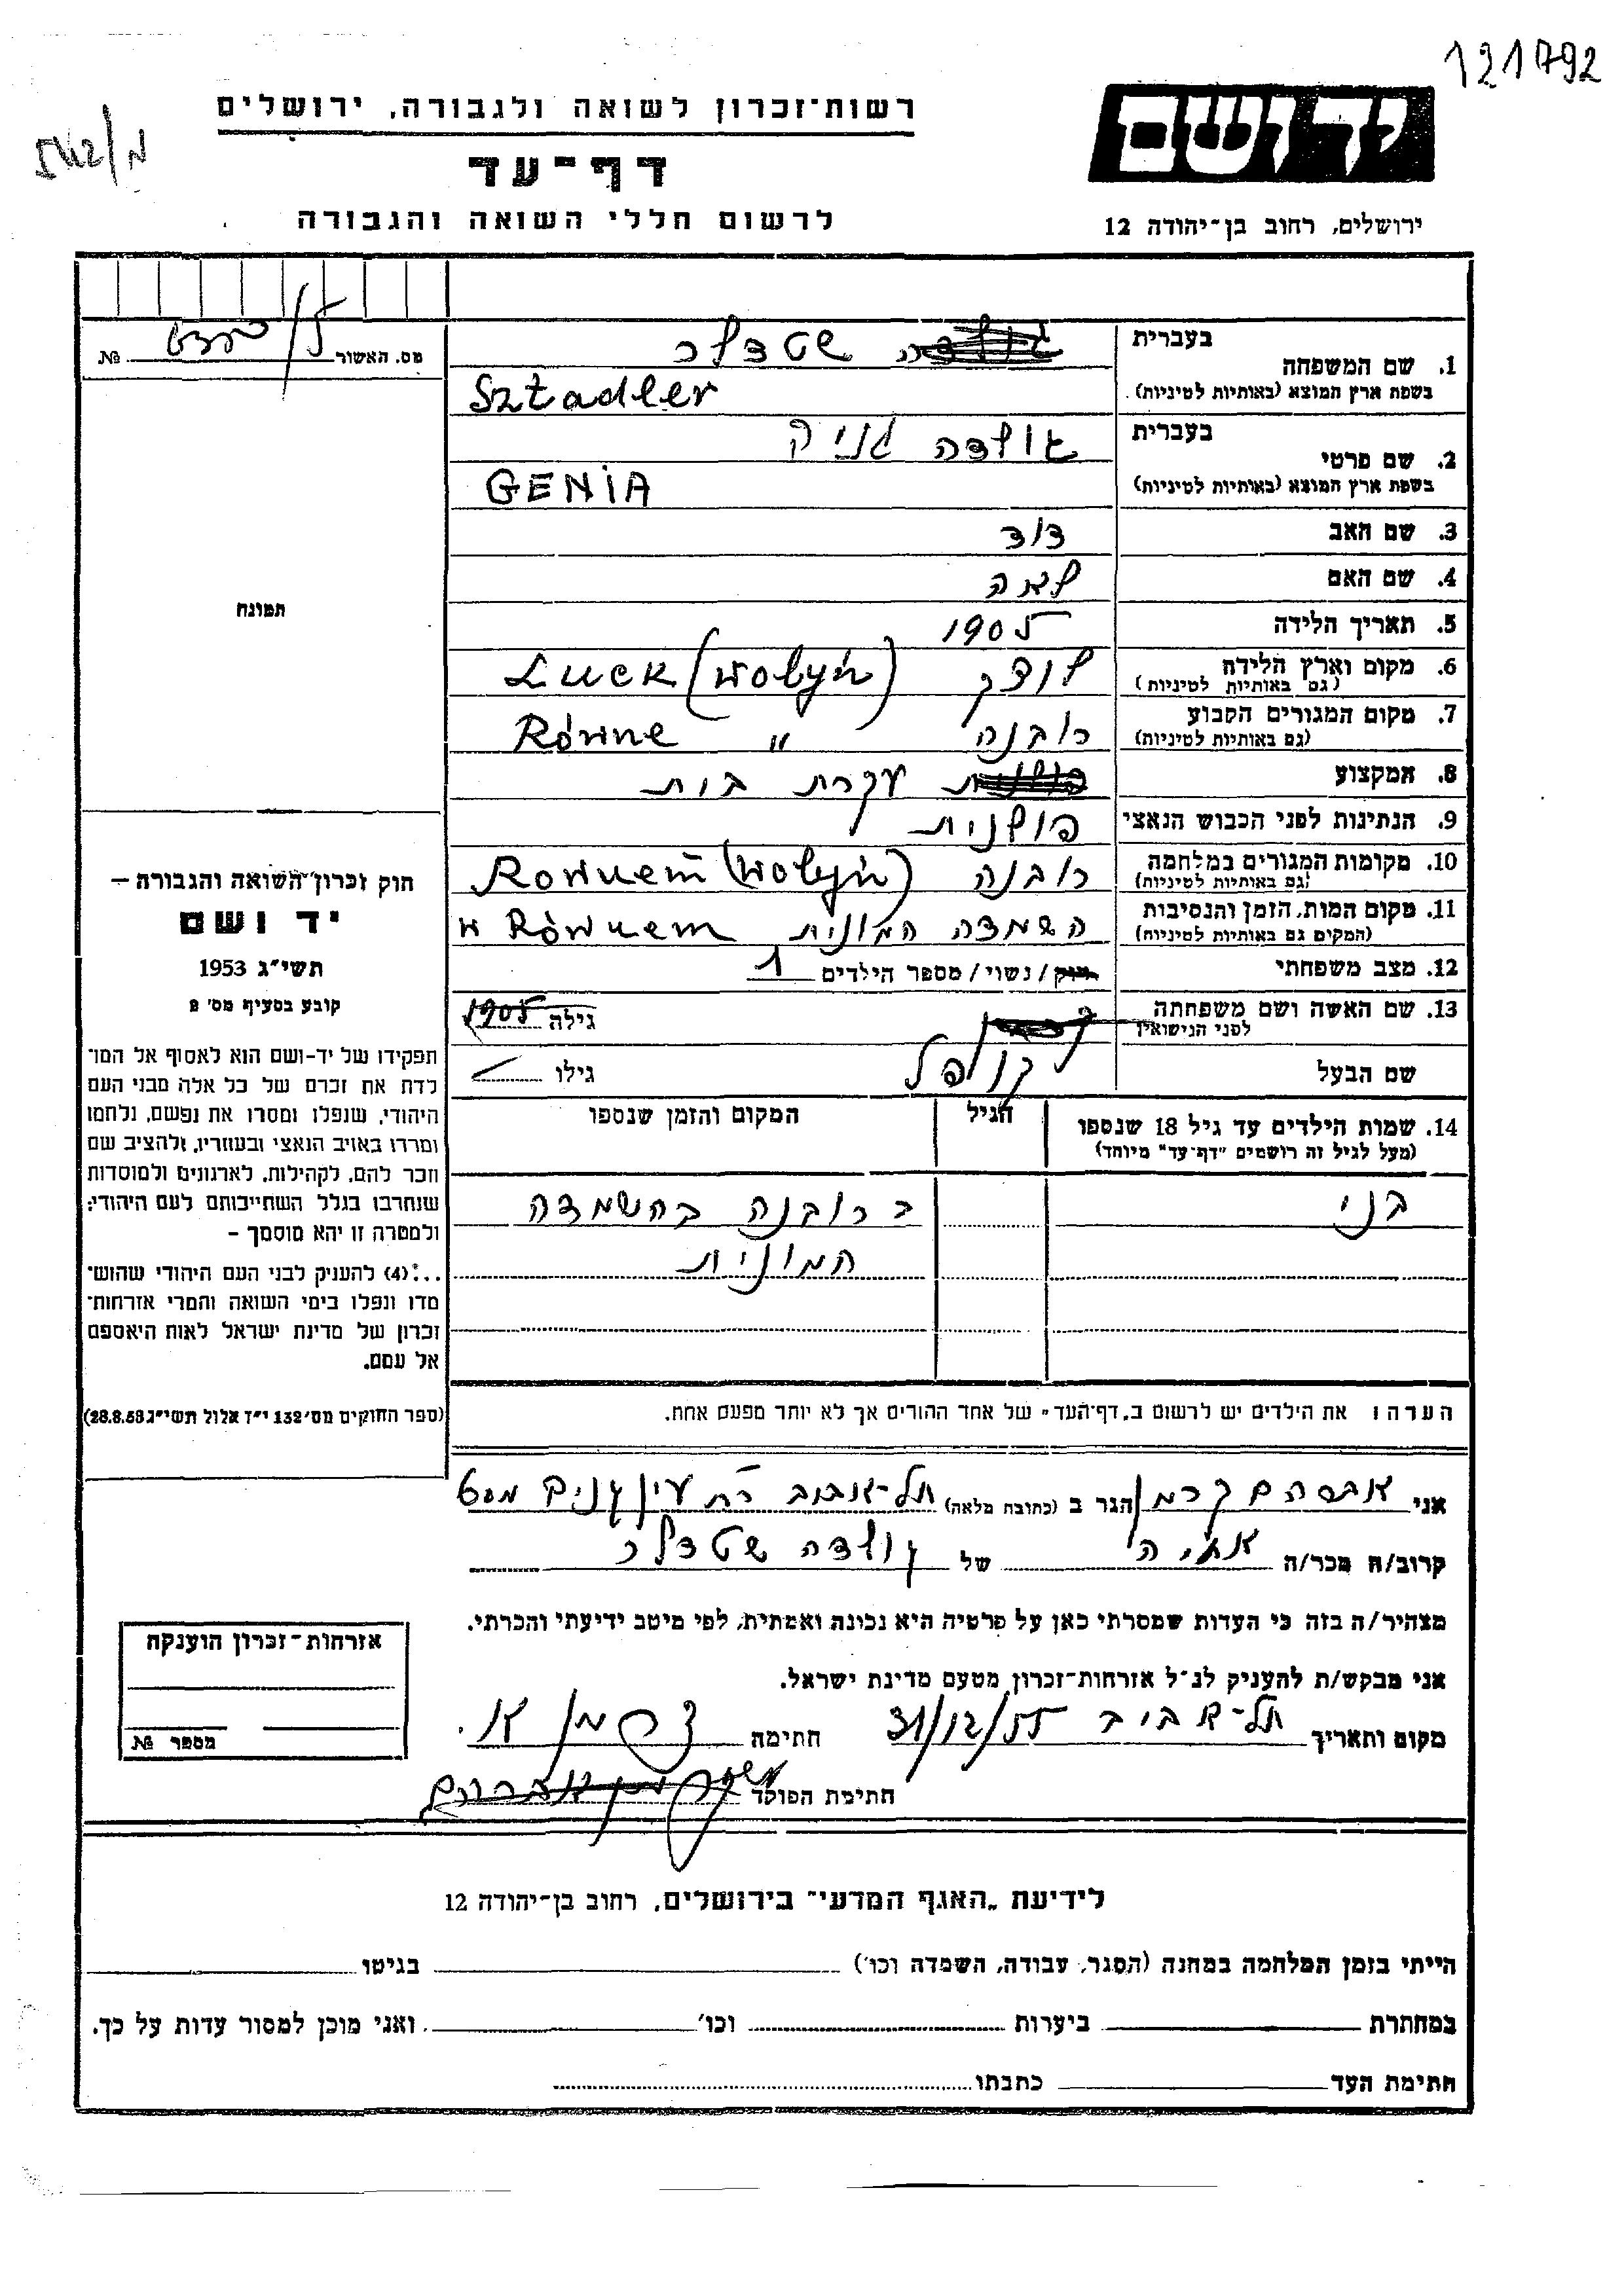 121792
רשות־זכרון לשואה ולגבורה, ירושלים
דף־עד
לרשום חללי השואה והגבורה
יד ושם
ירושלים, רחוב בן־יהודה 12
מס. האשור №
1. שם המשפחה
בעברית שטדלר
בשפת ארץ המוצא (באותיות לטיניות) Sztadler
2. שם פרטי
בעברית גולדה גניה
בשפת ארץ המוצא (באותיות לטיניות) GENIA
3. שם האב דוד
4. שם האם לאה
5. תאריך הלידה 1905
6. מקום וארץ הלידה (גם באותיות לטיניות) לוצק Łuck (Wołyń)
7. מקום המגורים הקבוע (גם באותיות לטיניות) רובנה " Równe
8. המקצוע עקרת בית
9. הנתינות לפני הכבוש הנאצי פולנית
10. מקומות המגורים במלחמה (גם באותיות לטיניות) רובנה Rownem (Wołyń)
11. מקום המות, הזמן והנסיבות (המקום גם באותיות לטיניות) השמדה המונית w Równem
12. מצב משפחתי רווק / נשוי / מספר הילדים 1
13. שם האשה ושם משפחתה לפני הנישואין גילה 1905
שם הבעל קופל גילו
14. שמות הילדים עד גיל 18 שנספו
(מעל לגיל זה רושמים "דף־עד" מיוחד)
הגיל
המקום והזמן שנספו
בני ברובנה בהשמדה
המונית
תמונה
חוק זכרון־השואה והגבורה –
יד ושם
תשי״ג 1953
קובע בסעיף מס׳ 2
תפקידו של יד-ושם הוא לאסוף אל המו־
לדת את זכרם של כל אלה מבני העם
היהודי, שנפלו ומסרו את נפשם, נלחמו
ומרדו באויב הנאצי ובעוזריו, ולהציב שם
וזכר להם, לקהילות, לארגונים ולמוסדות
שנחרבו בגלל השתייכותם לעם היהודי;
ולמטרה זו יהא מוסמך –
...(4) להעניק לבני העם היהודי שהוש־
מדו ונפלו בימי השואה והמרי אזרחות־
זכרון של מדינת ישראל לאות היאספם
אל עמם.
(ספר החוקים מס׳ 132 י״ז אלול תשי״ג 28.8.53)
הערה: את הילדים יש לרשום ב„דף־העד" של אחד ההורים אך לא יותר מפעם אחת.
אני אברהם הגר ב (כתובת מלאה) תל-אביב
קרוב/ה מכר/ה של גולדה שטדלר
מצהיר/ה בזה כי העדות שמסרתי כאן על פרטיה היא נכונה ואמתית, לפי מיטב ידיעתי והכרתי.
אני מבקש/ת להעניק לנ״ל אזרחות-זכרון מטעם מדינת ישראל.
מקום ותאריך תל-אביב 31/12/55 חתימה
חתימת הפוקד
אזרחות־זכרון הוענקה
מספר №
לידיעת „האגף המדעי" בירושלים, רחוב בן־יהודה 12
הייתי בזמן המלחמה במחנה (הסגר, עבודה, השמדה וכו׳) בגיטו
במחתרת ביערות וכו׳ ואני מוכן למסור עדות על כך.
חתימת העד כתבתו